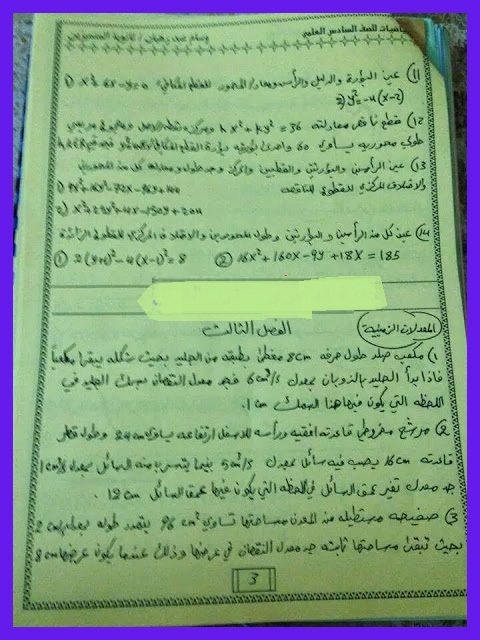 رياضيات للصف السادس العلمي
11) عين البؤرة والدليل والرأس ومعادلة المحور للقطع المكافئ 1) x²+6x-y=0
2) y²=-4(x-2)
12) قطع ناقص معادلته hx²+ky²=36 ومركزه نقطة الاصل ومجموع مربعي
طولي محوريه يساوي 60 واحدى بؤرتيه بؤرة القطع المكافئ فجد قيمة h,k
13) عين الرأسين والبؤرتين والقطبين والمركز وجد طول ومعادلة كل من المحورين
والاختلاف المركزي للقطوع الناقصة
14) عين كل من الرأسين والبؤرتين وطول المحورين والاختلاف المركزي للقطوع الزائدة
① 2(y+1)²-4(x-1)²=8 ② 16x²+160x-9y²+18y=185
المعدلات الزمنية
الفصل الثالث
1) مكعب صلد طول حرفه 8cm مغطى بطبقة من الجليد بحيث شكله يبقى مكعباً
فاذا بدأ الجليد بالذوبان بمعدل 6cm³/s فجد معدل النقصان بسمك الجليد في
اللحظة التي يكون فيها هذا السمك 1cm.
2) مرشح مخروطي قاعدته افقية ورأسه للاسفل ارتفاعه يساوي 24cm وطول قطر
قاعدته 16cm يصب فيه سائل بمعدل 5cm³/s بينما يتسرب منه السائل بمعدل 1cm³/s
جد معدل تغير عمق السائل في اللحظة التي يكون فيها عمق السائل 12cm.
3) صفيحة مستطيلة من المعدن مساحتها تساوي 96cm² يتمدد طولها بمعدل 2cm/s
بحيث تبقى مساحتها ثابتة جد معدل النقصان في عرضها وذلك عندما يكون عرضها 8cm
3